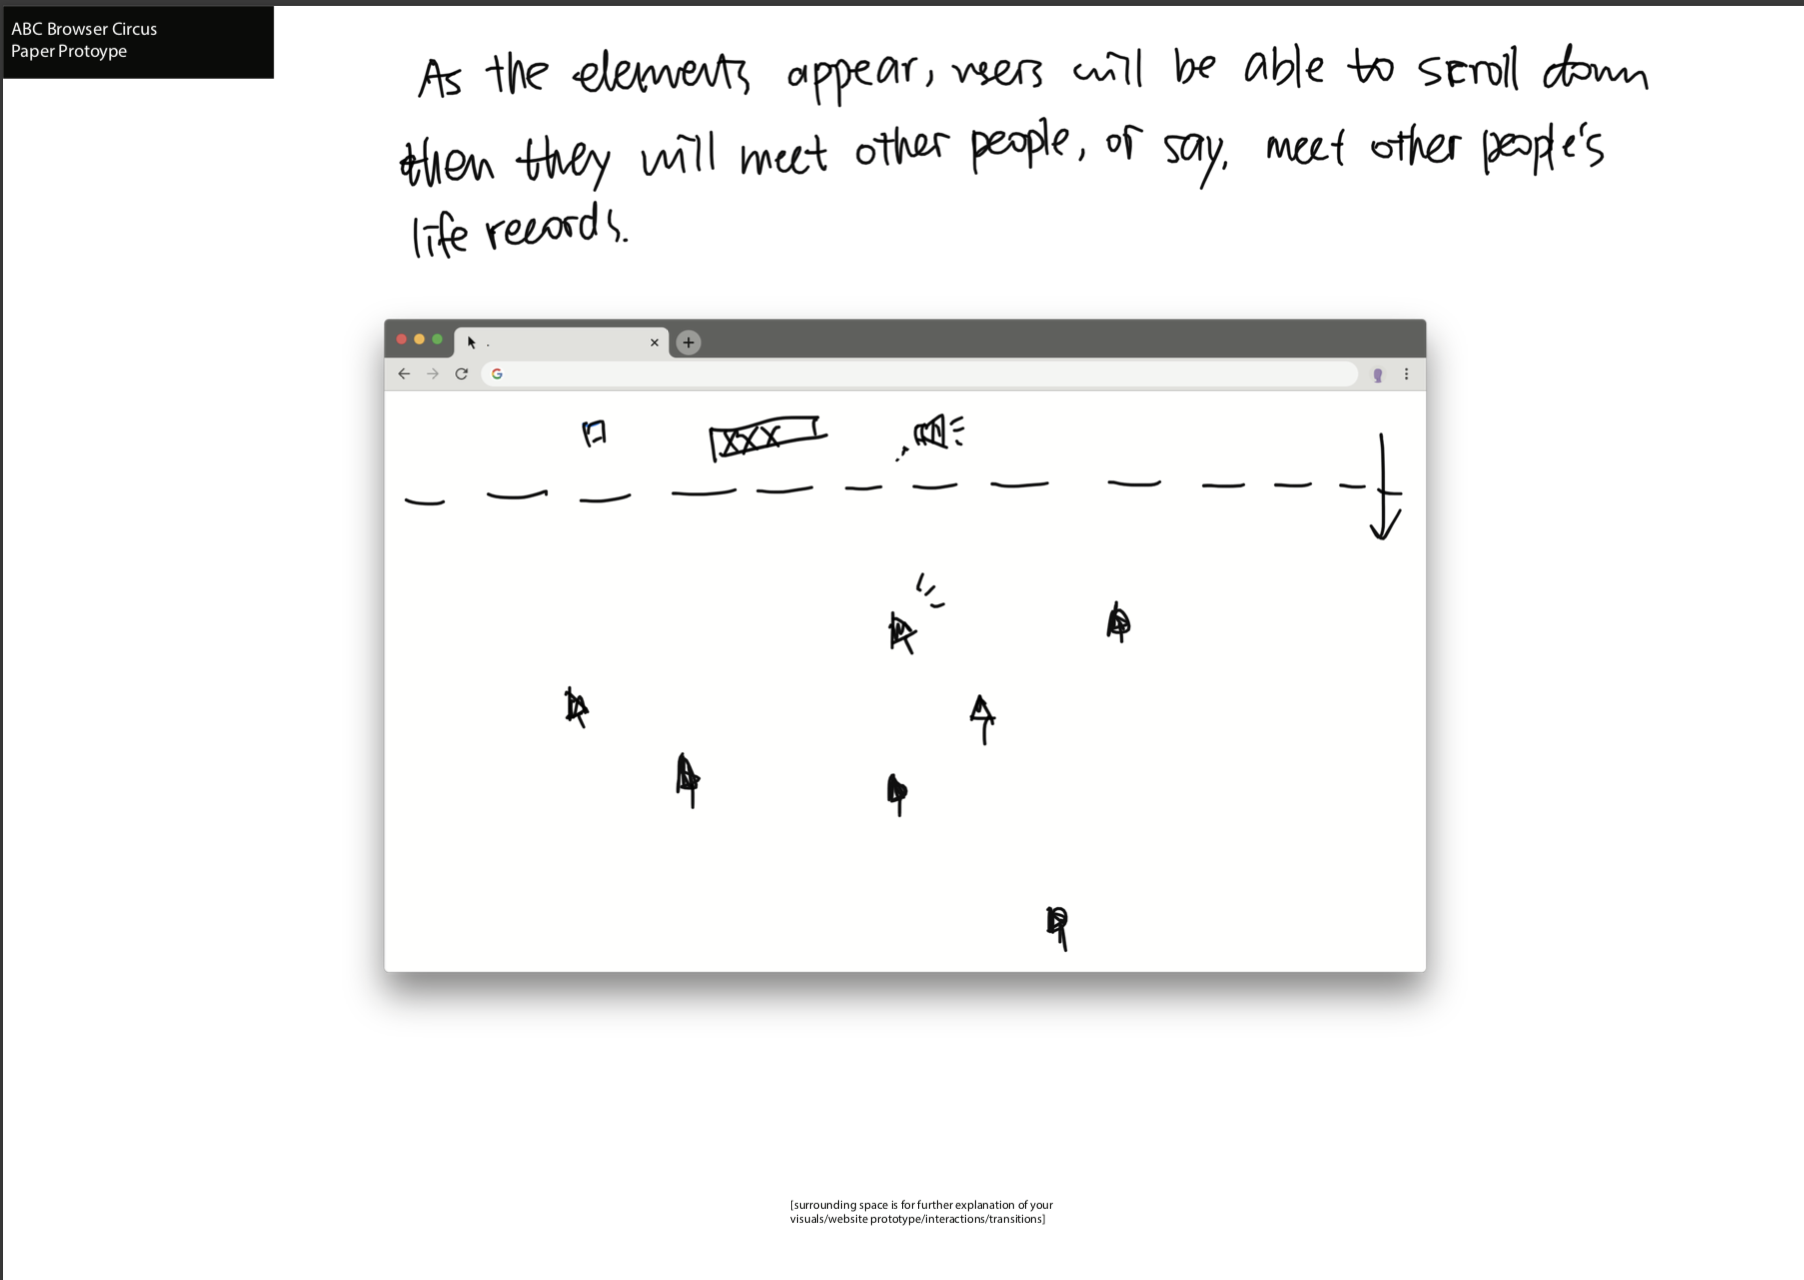 ABC Browser Circus
Paper Protoype
As the elements appear, users will be able to scroll down
then they will meet other people, or say, meet other people's
life records.
XXX
[surrounding space is for further explanation of your
visuals/website prototype/interactions/transitions]